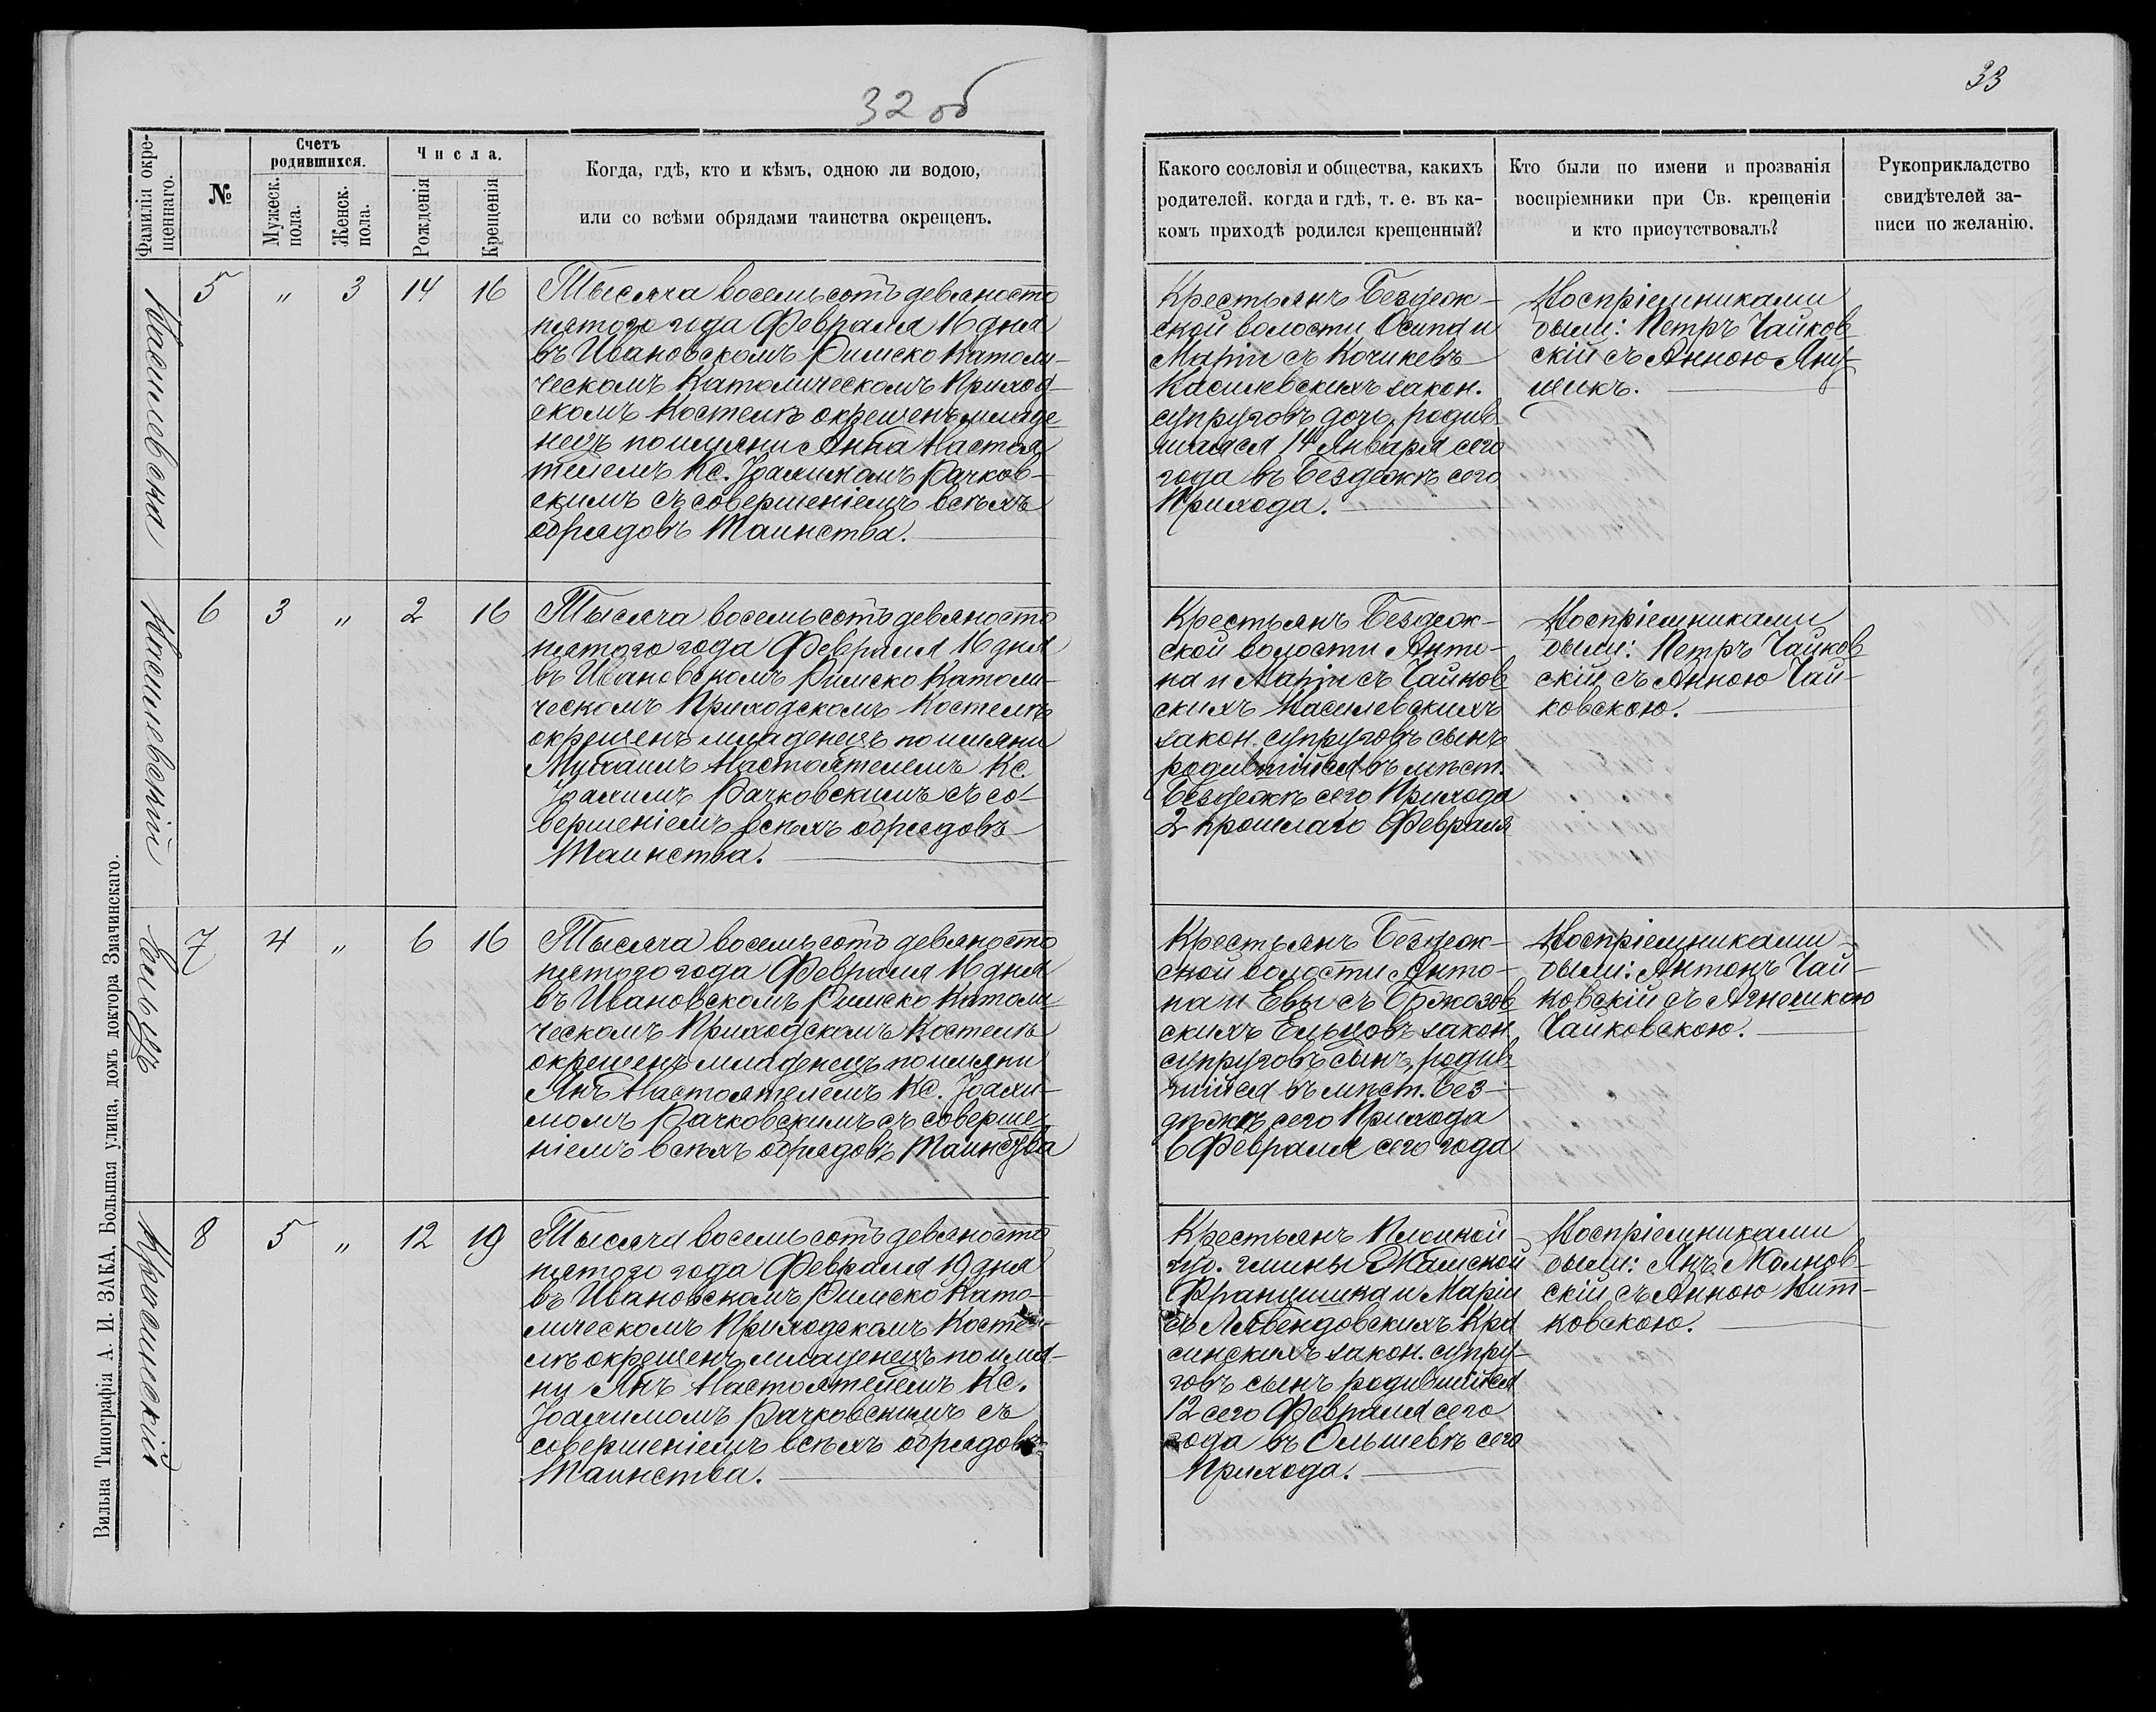 32 об
33
Фамилія окре-
щеннаго.
№
Счетъ
родившихся.
Мужеск.
пола.
Женск.
пола.
Числа.
Рожденія
Крещенія
Когда, гдѣ, кто и кѣмъ, одною ли водою,
или со всѣми обрядами таинства окрещенъ.
Какого сословія и общества, какихъ
родителей, когда и гдѣ, т. е. въ ка-
комъ приходѣ родился крещенный?
Кто были по имени и прозванія
воспріемники при Св. крещеніи
и кто присутствовалъ?
Рукоприкладство
свидѣтелей за-
писи по желанію.
5 " 3 14 16
Тысяча восемьсотъ девяносто
пятого года Февраля 16 дня
въ Ивановскомъ Римско Католи-
ческомъ Католическомъ Приход-
скомъ Костелѣ окрещенъ младе-
нецъ по имяни Анна Настоя
телемъ Кс. Рачков-
скимъ съ совершеніемъ всѣхъ
обрядовъ Таинства.
Крестьянъ Бездеж-
ской волости Осипа и
Маріи съ
закон.
супруговъ дочь, родив-
шаяся 14 Января сего
года въ Бездежѣ сего
Прихода.
Воспріемниками
были: Петръ Чайков
скій съ Анною Яну-
щикъ.
6 3 " 2 16
Тысяча восемьсотъ девяносто
пятого года Февраля 16 дня
въ Ивановскомъ Римско Католи-
ческомъ Приходскомъ Костелѣ
окрещенъ младенецъ по имяни
Михаилъ Настоятелемъ Кс.
Рачковскимъ съ со-
вершеніемъ всѣхъ обрядовъ
Таинства.
Крестьянъ Бездеж-
ской волости Анто-
на и Маріи съ Чайков
скихъ
закон. супруговъ сынъ
родившійся въ мѣст.
Бездежѣ сего Прихода
2 прошлаго Февраля
Воспріемниками
были: Петръ Чайков
скій съ Анною Чай-
ковскою.
Ельцъ
7 4 " 6 16
Тысяча восемьсотъ девяносто
пятого года Февраля 16 дня
въ Ивановскомъ Римско Католи-
ческомъ Приходскомъ Костелѣ
окрещенъ младенецъ по имяни
Янъ Настоятелемъ Кс. Іоахи-
момъ Рачковскимъ съ соверше
ніемъ всѣхъ обрядовъ Таинства
Крестьянъ Бездеж-
ской волости Анто-
на и Евы съ Бржозов
скихъ Ельцовъ закон.
супруговъ сынъ, родив-
шійся въ мѣст. Без-
дѣжѣ сего Прихода
6 Февраля сего года
Воспріемниками
были: Антонъ Чай-
ковскій съ Агнешкою
Чайковскою.
Красинскій
8 5 " 12 19
Тысяча восемьсотъ девяносто
пятого года Февраля 19 дня
въ Ивановскомъ Римско Като-
лическомъ Приходскомъ Косте-
лѣ окрещенъ младенецъ по имя-
ни Янъ Настоятелемъ Кс.
Іоахимомъ Рачковскимъ съ
совершеніемъ всѣхъ обрядовъ
Таинства.
Крестьянъ Плоцкой
губ. гмины
Францишка и Маріи
съ Левендовскихъ Кра
синскихъ закон. супру-
говъ сынъ родившійся
12 сего Февраля сего
года въ Ольшевѣ сего
Прихода.
Воспріемниками
были: Янъ
скій съ Анною Вит-
ковскою.
Вильна Типографія А. И. ЗАКА, Большая улица, домъ доктора Змачинскаго.